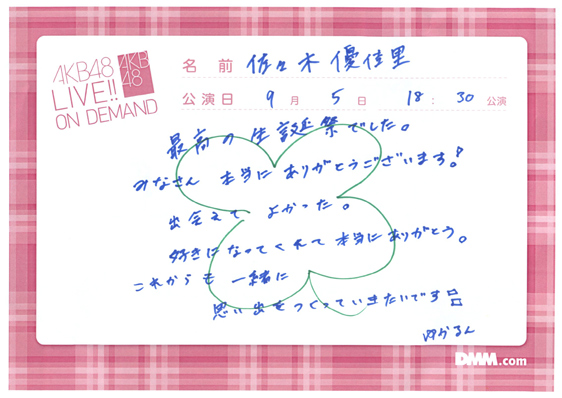 AKB48
LIVE!!
ON DEMAND
AKB
48
名前 佐々木優佳里
公演日 9月 5日 18:30公演
最高の生誕祭でした。
みなさん 本当にありがとうございます!
出会えて よかった。
好きになってくれて本当にありがとう。
これからも 一緒に
思い出をつくっていきたいです
ゆかるん
DMM.com